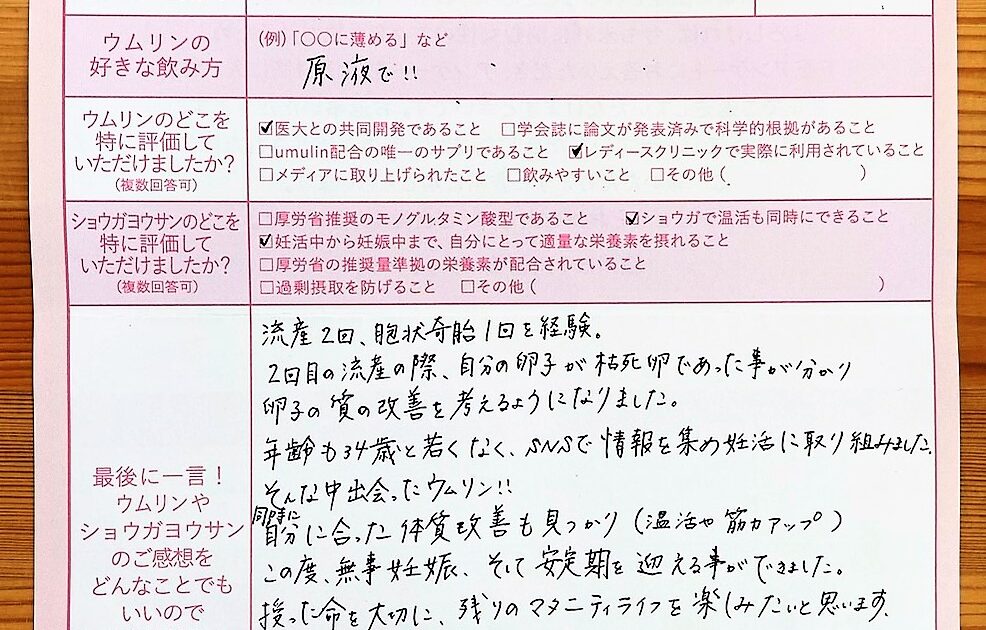 ウムリンの
好きな飲み方
(例)「〇〇に薄める」など
原液で!!
ウムリンのどこを
特に評価して
いただけましたか?
(複数回答可)
☑医大との共同開発であること □学会誌に論文が発表済みで科学的根拠があること
□umulin配合の唯一のサプリであること ☑レディースクリニックで実際に利用されていること
□メディアに取り上げられたこと □飲みやすいこと □その他( )
ショウガヨウサンのどこを
特に評価して
いただけましたか?
(複数回答可)
□厚労省推奨のモノグルタミン酸型であること ☑ショウガで温活も同時にできること
☑妊活中から妊娠中まで、自分にとって適量な栄養素を摂れること
□厚労省の推奨量準拠の栄養素が配合されていること
□過剰摂取を防げること □その他( )
最後に一言!
ウムリンや
ショウガヨウサン
のご感想を
どんなことでも
いいので
流産2回、胞状奇胎1回を経験。
2回目の流産の際、自分の卵子が枯死卵であった事が分かり
卵子の質の改善を考えるようになりました。
年齢も34歳と若くなく、SNSで情報を集め妊活に取り組みました。
そんな中出会ったウムリン!!
同時に
自分に合った体質改善も見つかり(温活や筋力アップ)
この度、無事妊娠、そして安定期を迎える事ができました。
授った命を大切に、残りのマタニティライフを楽しみたいと思います。